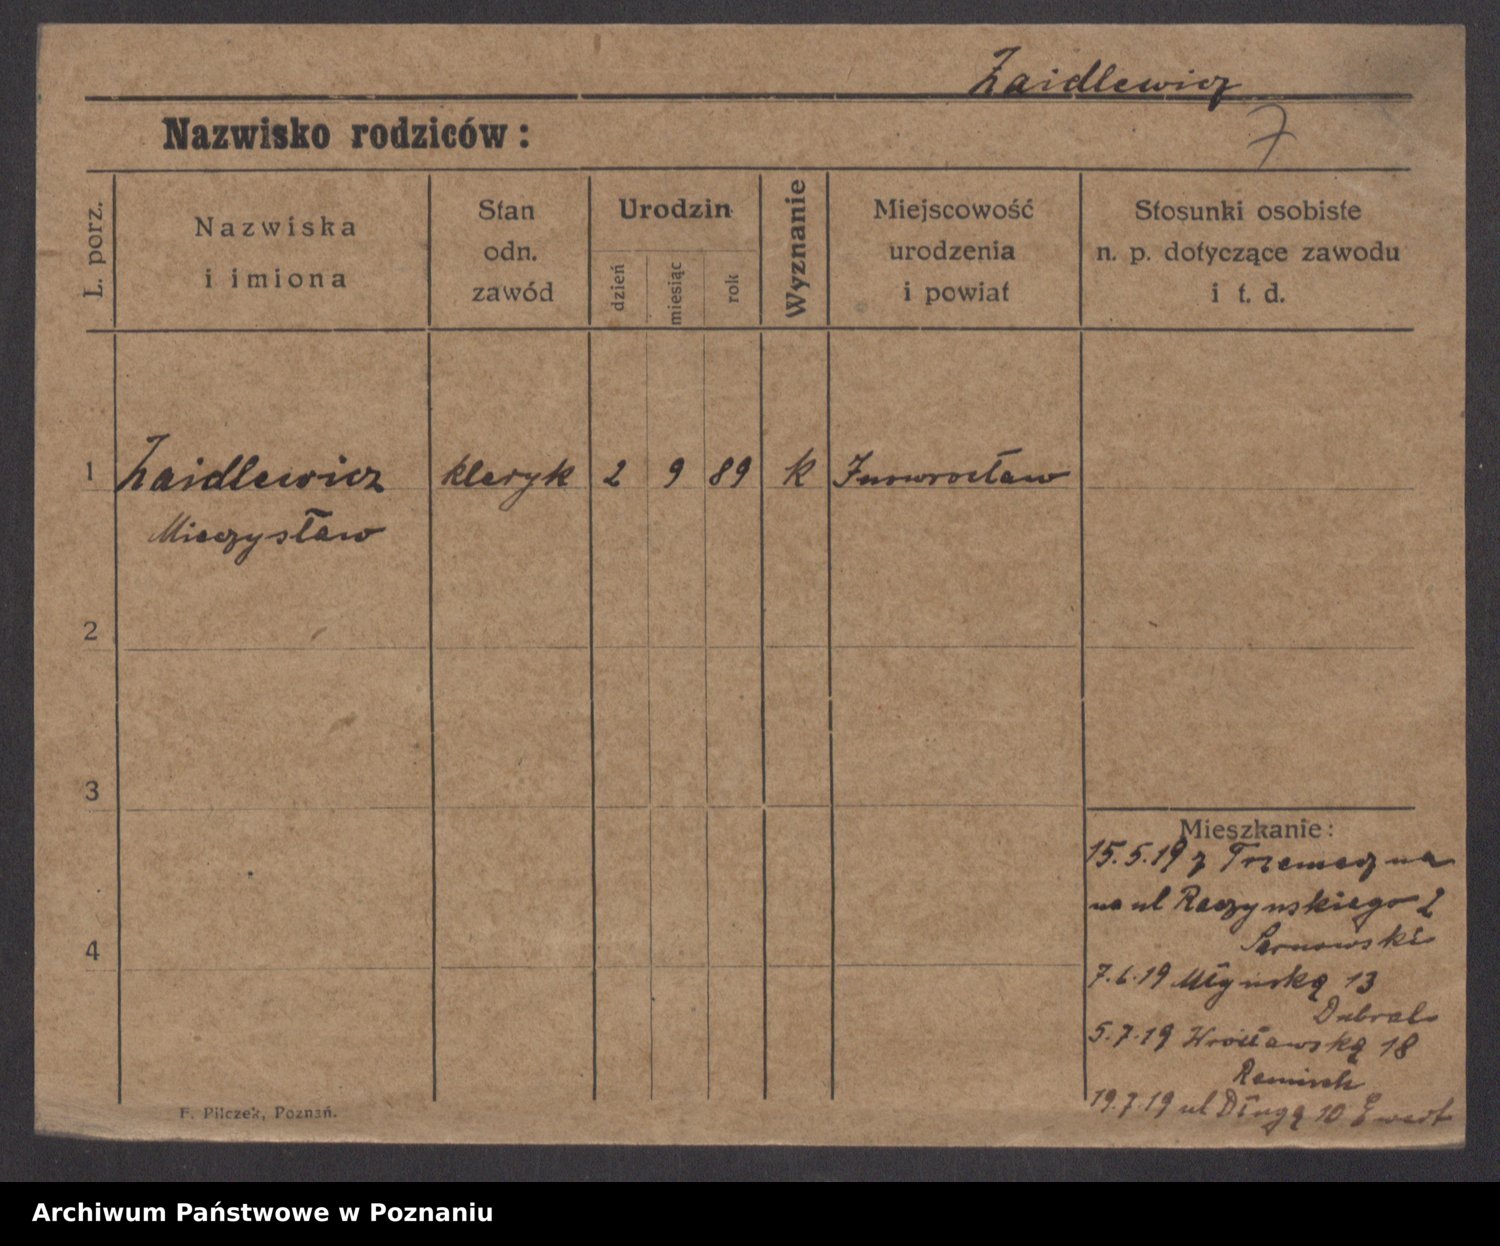 Zaidlewicz
7
Nazwisko rodziców:
L. porz.
Nazwiska
i imiona
Stan
odn.
zawód
Urodzin
dzień
miesiąc
rok
Wyznanie
Miejscowość
urodzenia
i powiat
Stosunki osobiste
n. p. dotyczące zawodu
i t. d.
1 Zaidlewicz kleryk 2 9 89 k Inowrocław
Mieczysław
2
3
4
Mieszkanie:
15.5.19 z Trzemeszna
na ul Raczynskiego 2
Sarnowski
7.6.19 Młyńską 13
Dubral
5.7.19 Wrocławską 18
Remisch
19.7.19 ul Długą 10 Ewert
F. Pilczek, Poznań.
Archiwum Państwowe w Poznaniu